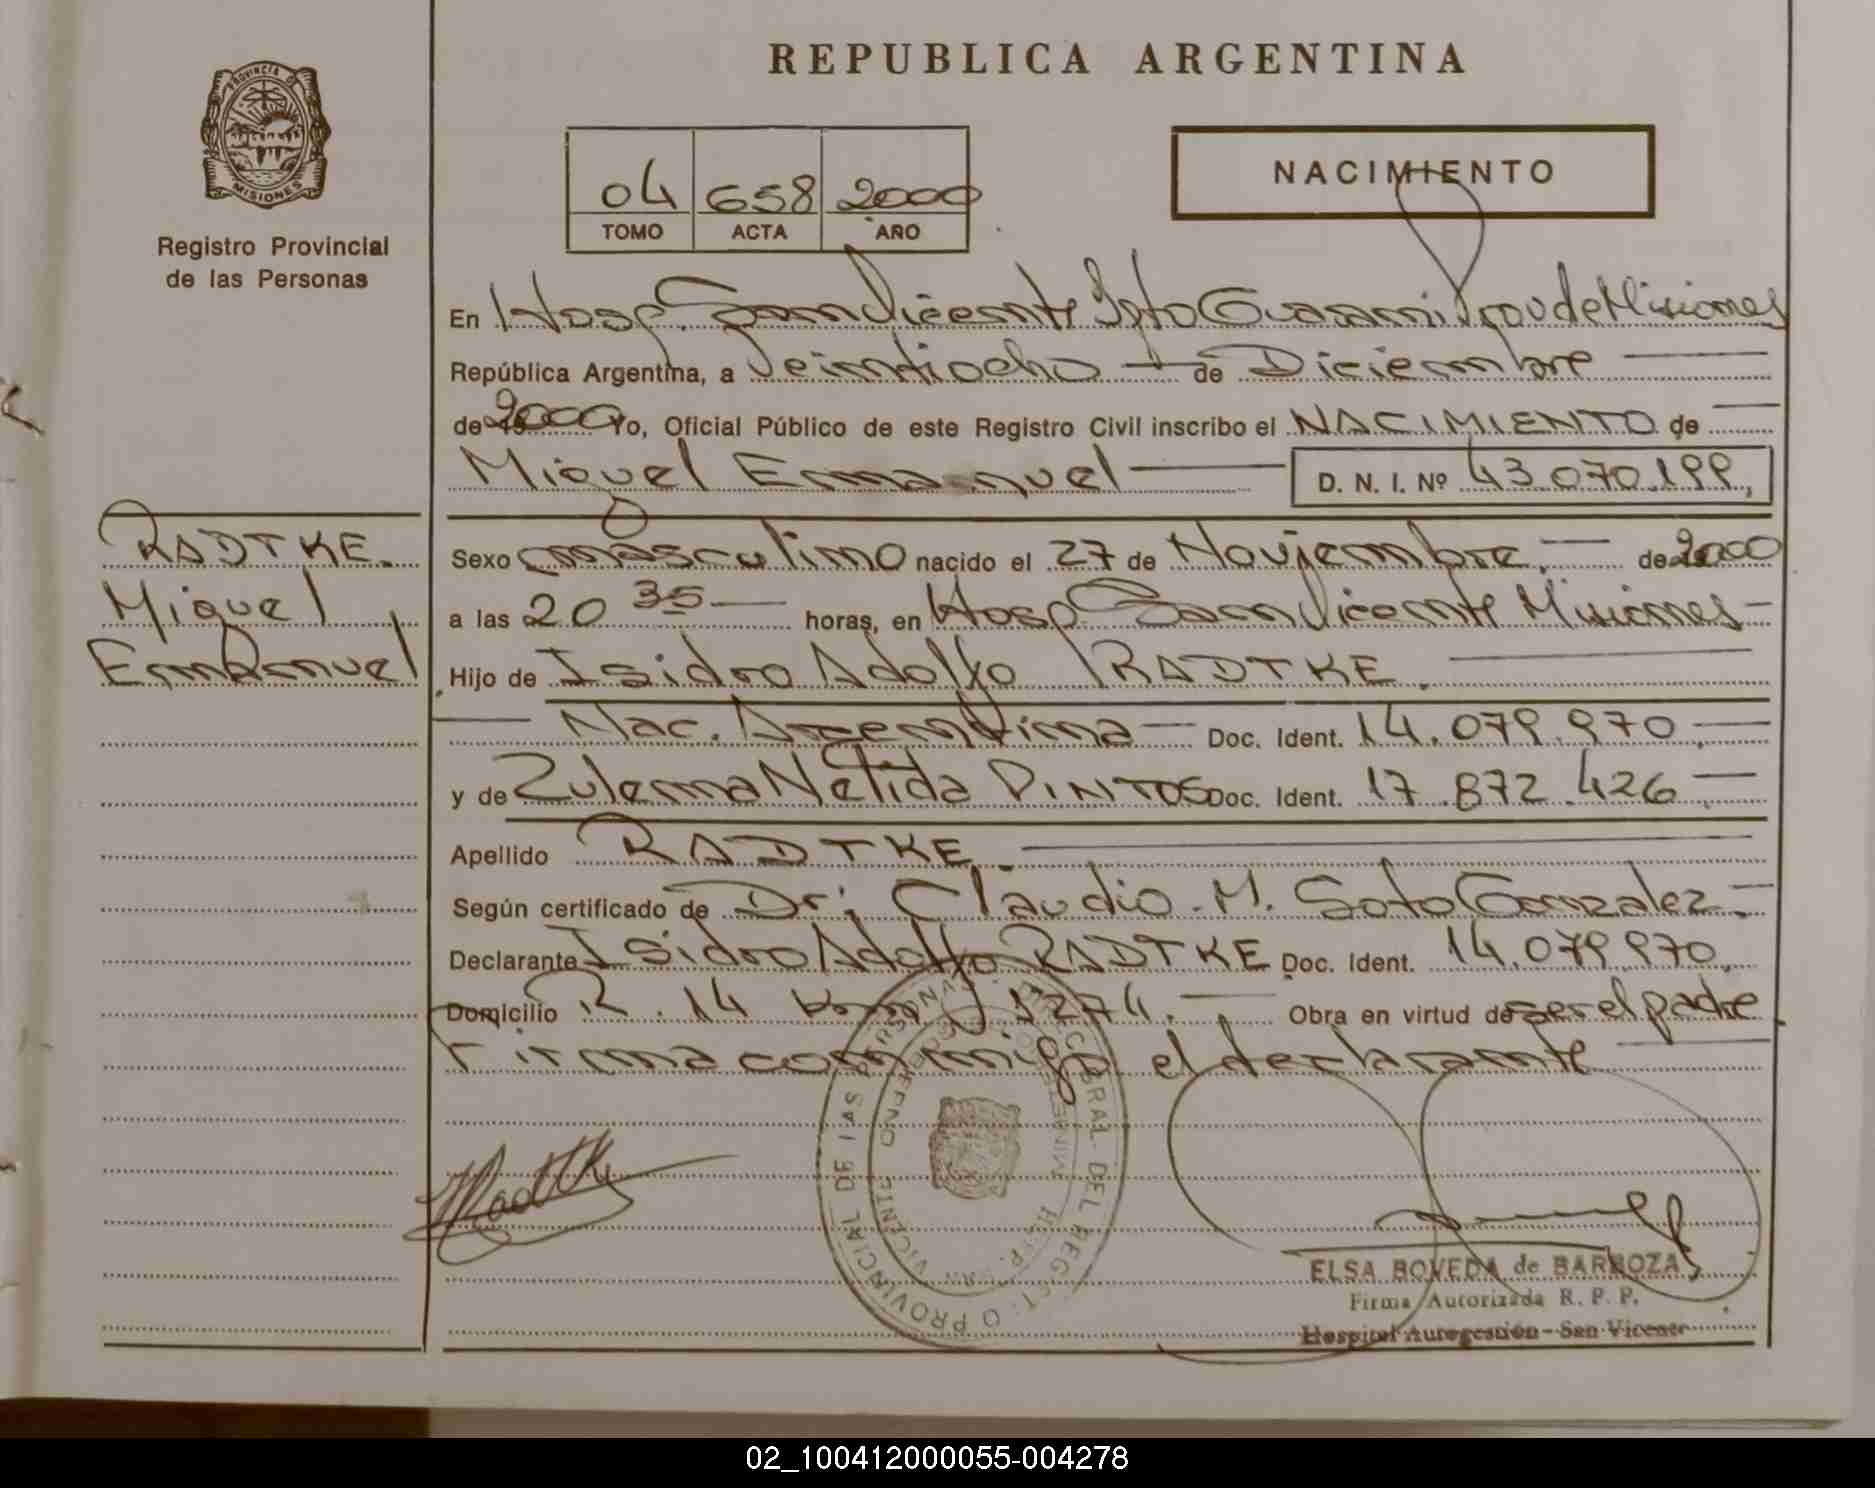 REPUBLICA ARGENTINA
PROVINCIA DE
MISIONES
Registro Provincial
de las Personas
04 658 2000
TOMO ACTA AÑO
NACIMIENTO
En Hosp. San Vicente Dpto Guarani Prov de Misiones
República Argentina, a Veintiocho — de Diciembre —
de 2000 Yo, Oficial Público de este Registro Civil inscribo el NACIMIENTO de —
Miguel Emmanuel — D. N. I. Nº 43.070.199,
RADTKE.
Miguel
Emmanuel
Sexo masculino nacido el 27 de Noviembre. — de 2000
a las 20 35 — horas, en Hosp San Vicente Misiones —
Hijo de Isidro Adolfo RADTKE. —
— Nac. Argentina — Doc. Ident. 14.079.970, —
y de Zulema Nelida PINTOS Doc. Ident. 17.872.426 —
Apellido RADTKE. —
Según certificado de Dr; Claudio. M. Soto Gonzalez. —
Declarante Isidro Adolfo RADTKE Doc. Ident. 14.079.970,
Domicilio R. 14 Km 1274. — Obra en virtud de ser el padre
Firma conmigo el declarante —
Radtke
PROVINCIAL DE LAS PERSONAS
GRAL. DEL
GOBIERNO
HOSP. SAN VICENTE
ELSA BOVEDA de BARBOZA
Firma Autorizada R. P. P.
Hospital Autogestión - San Vicente
02_100412000055-004278